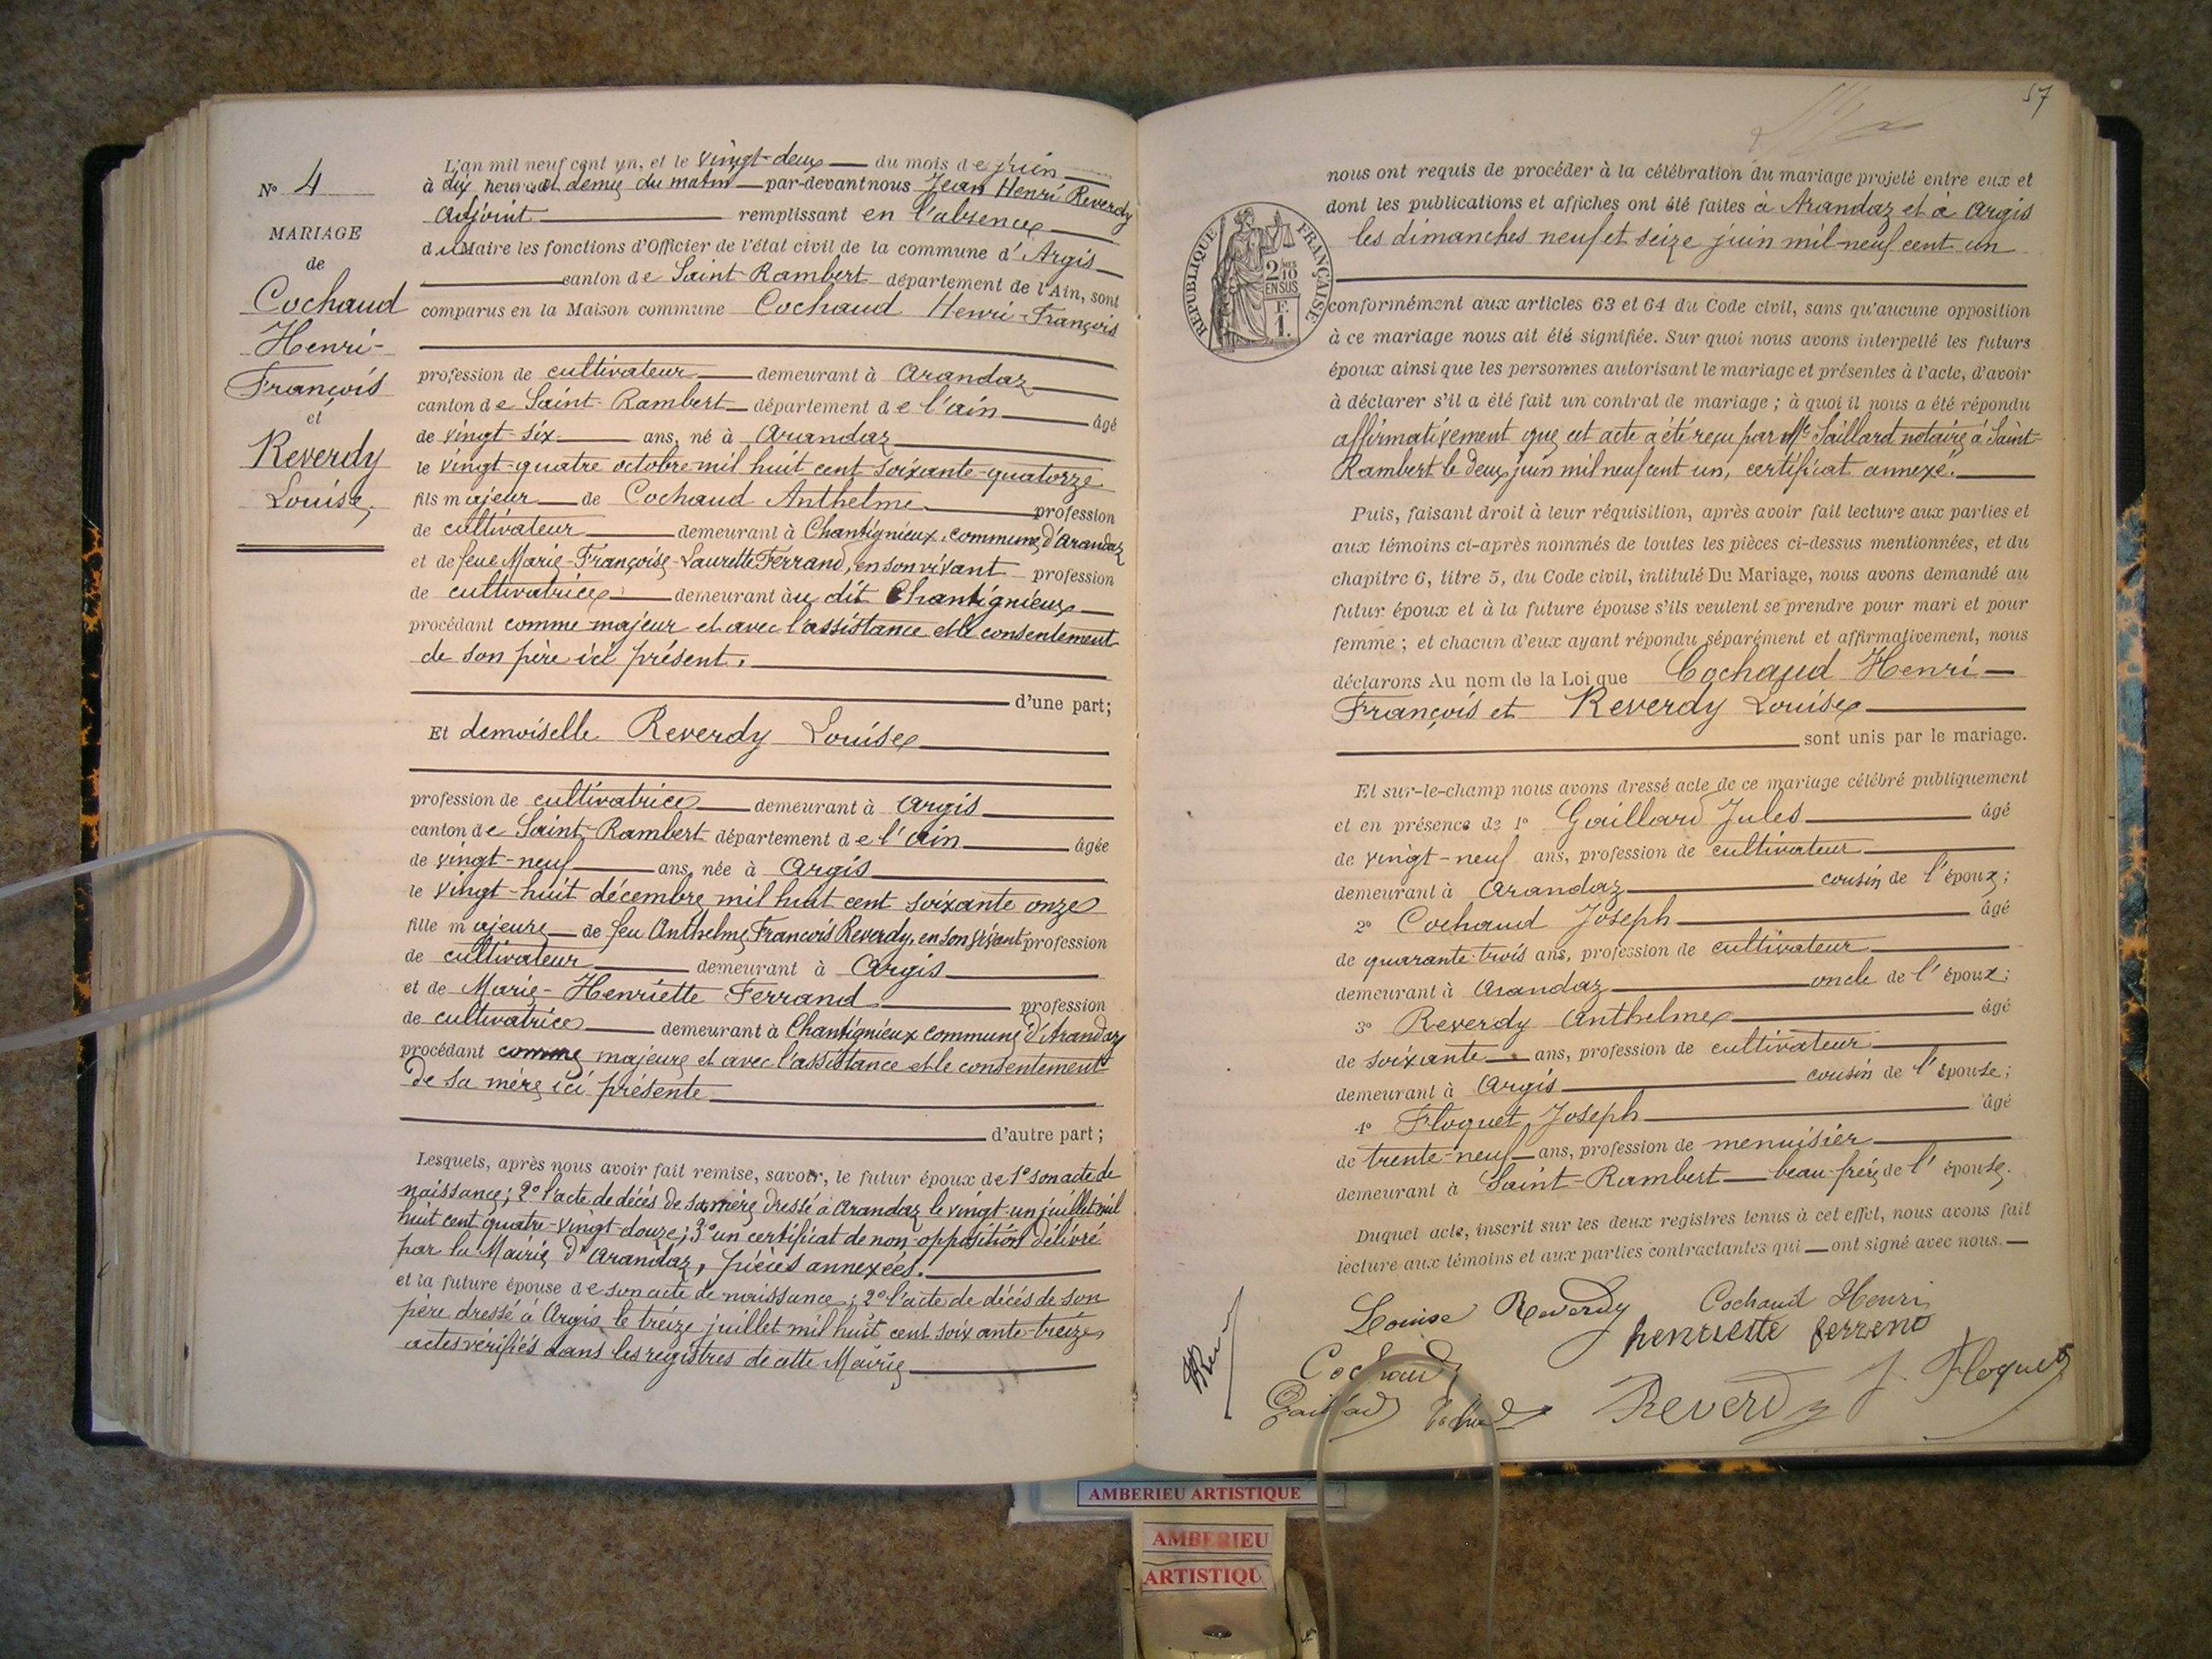 N° 4
MARIAGE
de
Cochaud
Henri-
François
et
Reverdy
Louise
L'an mil neuf cent un, et le vingt-deux du mois de juin
à dix heures et demie du matin par-devant nous Jean Henri Reverdy
adjoint remplissant en l'absence
du Maire les fonctions d'Officier de l'état civil de la commune d'Argis
canton de Saint-Rambert département de l'Ain, sont
comparus en la Maison commune Cochaud Henri-François
profession de cultivateur demeurant à Arandaz
canton de Saint-Rambert département de l'ain âgé
de vingt-six ans, né à Arandaz
le vingt-quatre octobre mil huit cent soixante-quatorze
fils majeur de Cochaud Anthelme profession
de cultivateur demeurant à Chantignieux, commune d'Arandaz
et de feue Marie-Françoise-Laurette Ferrand, en son vivant profession
de cultivatrice demeurant au dit Chantignieux
procédant comme majeur et avec l'assistance et le consentement
de son père ici présent.
d'une part;
Et demoiselle Reverdy Louise
profession de cultivatrice demeurant à Argis
canton de Saint-Rambert département de l'Ain âgée
de vingt-neuf ans, née à Argis
le vingt-huit décembre mil huit cent soixante onze
fille majeure de feu Anthelme François Reverdy, en son vivant profession
de cultivateur demeurant à Argis
et de Marie-Henriette Ferrand profession
de cultivatrice demeurant à Chantignieux commune d'Arandaz
procédant comme majeure et avec l'assistance et le consentement
de sa mère ici présente
d'autre part;
Lesquels, après nous avoir fait remise, savoir, le futur époux de 1° son acte de
naissance; 2° l'acte de décès de sa mère dressé à Arandaz le vingt-un juillet mil
huit cent quatre-vingt-douze; 3° un certificat de non-opposition délivré
par la Mairie d'Arandaz, pièces annexées.
et la future épouse de son acte de naissance; 2° l'acte de décès de son
père dressé à Argis le treize juillet mil huit cent soixante-treize,
actes vérifiés dans les registres de cette Mairie
57
RÉPUBLIQUE FRANÇAISE
2 10
EN SUS
F.
1.
nous ont requis de procéder à la célébration du mariage projeté entre eux et
dont les publications et affiches ont été faites à Arandaz et à Argis
les dimanches neuf et seize juin mil-neuf cent un
conformément aux articles 63 et 64 du Code civil, sans qu'aucune opposition
à ce mariage nous ait été signifiée. Sur quoi nous avons interpellé les futurs
époux ainsi que les personnes autorisant le mariage et présentes à l'acte, d'avoir
à déclarer s'il a été fait un contrat de mariage; à quoi il nous a été répondu
affirmativement que cet acte a été reçu par Me Saillard notaire à Saint-
Rambert le deux juin mil neuf cent un, certificat annexé.
Puis, faisant droit à leur réquisition, après avoir fait lecture aux parties et
aux témoins ci-après nommés de toutes les pièces ci-dessus mentionnées, et du
chapitre 6, titre 5, du Code civil, intitulé Du Mariage, nous avons demandé au
futur époux et à la future épouse s'ils veulent se prendre pour mari et pour
femme; et chacun d'eux ayant répondu séparément et affirmativement, nous
déclarons Au nom de la Loi que Cochaud Henri-
François et Reverdy Louise
sont unis par le mariage.
Et sur-le-champ nous avons dressé acte de ce mariage célébré publiquement
et en présence de 1° Gaillard Jules âgé
de vingt-neuf ans, profession de cultivateur
demeurant à Arandaz cousin de l'époux;
2° Cochaud Joseph âgé
de quarante-trois ans, profession de cultivateur
demeurant à Arandaz oncle de l'époux;
3° Reverdy Anthelme âgé
de soixante ans, profession de cultivateur
demeurant à Argis cousin de l'épouse;
4° Floquet Joseph âgé
de trente-neuf ans, profession de menuisier
demeurant à Saint-Rambert beau-frère de l'épouse.
Duquel acte, inscrit sur les deux registres tenus à cet effet, nous avons fait
lecture aux témoins et aux parties contractantes qui ont signé avec nous.
Louise Reverdy Cochaud Henri
henriette ferreno
Cochaud
Gaillard Reverdy J. Floquet
AMBERIEU ARTISTIQUE
AMBERIEU
ARTISTIQU